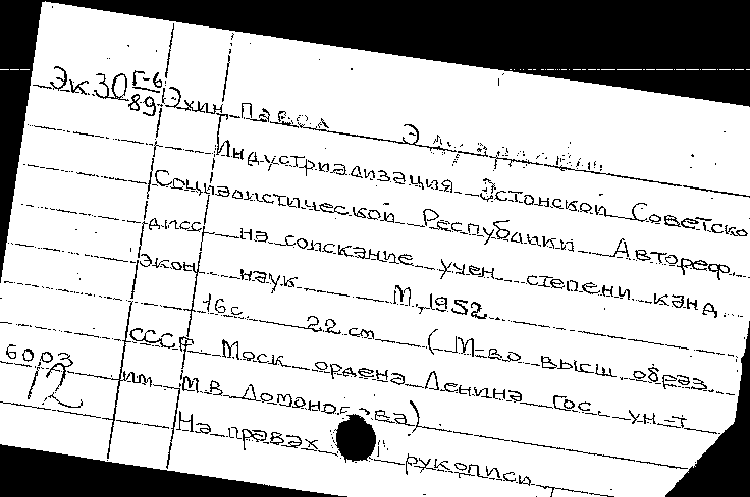 Эк30 Г-6
89
Эхин, Павел Эдуардович
Индустриализация Эстонской Советско
Социалистической Республики Автореф.
дисс на соискание учен степени канд.
экон наук М., 1952
16с. 22 см (М-во высш. образ.
СССР Моск ордена Ленина Гос. ун-т
им М.В. Ломоносова)
На правах рукописи.
60рз
12